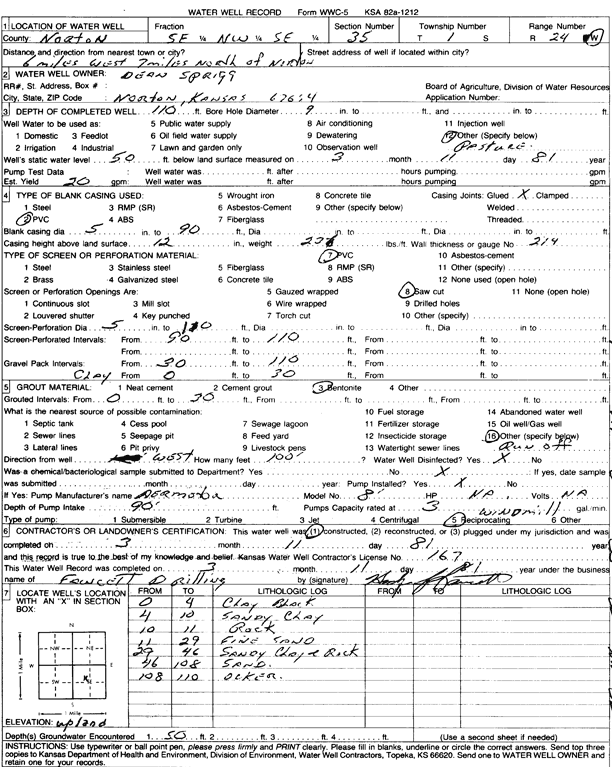 WATER WELL RECORD Form WWC-5 KSA 82a-1212
1 LOCATION OF WATER WELL Fraction Section Number Township Number Range Number
County: Norton SE ¼ NW ¼ SE ¼ 35 T 1 S R 24 W
Distance and direction from nearest town or city? Street address of well if located within city?
6 miles West 7 miles North of Norton
2 WATER WELL OWNER: Dean Sprigg
RR#, St. Address, Box # : Board of Agriculture, Division of Water Resources
City, State, ZIP Code : Norton, Kansas 67654 Application Number:
3 DEPTH OF COMPLETED WELL 110 ft. Bore Hole Diameter 9 in. to ft., and in. to ft.
Well Water to be used as: 5 Public water supply 8 Air conditioning 11 Injection well
1 Domestic 3 Feedlot 6 Oil field water supply 9 Dewatering 12 Other (Specify below)
2 Irrigation 4 Industrial 7 Lawn and garden only 10 Observation well Pasture
Well's static water level 50 ft. below land surface measured on 3 month 11 day 81 year
Pump Test Data : Well water was ft. after hours pumping gpm
Est. Yield 20 gpm: Well water was ft. after hours pumping gpm
4 TYPE OF BLANK CASING USED: 5 Wrought iron 8 Concrete tile Casing Joints: Glued X Clamped
1 Steel 3 RMP (SR) 6 Asbestos-Cement 9 Other (specify below) Welded
2 PVC 4 ABS 7 Fiberglass Threaded
Blank casing dia 5 in. to 90 ft., Dia in. to ft., Dia in. to ft.
Casing height above land surface 12 in., weight lbs./ft. Wall thickness or gauge No 214
TYPE OF SCREEN OR PERFORATION MATERIAL: 7 PVC 10 Asbestos-cement
1 Steel 3 Stainless steel 5 Fiberglass 8 RMP (SR) 11 Other (specify)
2 Brass 4 Galvanized steel 6 Concrete tile 9 ABS 12 None used (open hole)
Screen or Perforation Openings Are: 5 Gauzed wrapped 8 Saw cut 11 None (open hole)
1 Continuous slot 3 Mill slot 6 Wire wrapped 9 Drilled holes
2 Louvered shutter 4 Key punched 7 Torch cut 10 Other (specify)
Screen-Perforation Dia 5 in. to 110 ft., Dia in. to ft., Dia in. to ft.
Screen-Perforated Intervals: From 90 ft. to 110 ft., From ft. to ft.
From ft. to ft., From ft. to ft.
Gravel Pack Intervals: From 30 ft. to 110 ft., From ft. to ft.
Clay From 0 ft. to 30 ft., From ft. to ft.
5 GROUT MATERIAL: 1 Neat cement 2 Cement grout 3 Bentonite 4 Other
Grouted Intervals: From 0 ft. to 30 ft., From ft. to ft., From ft. to ft.
What is the nearest source of possible contamination: 10 Fuel storage 14 Abandoned water well
1 Septic tank 4 Cess pool 7 Sewage lagoon 11 Fertilizer storage 15 Oil well/Gas well
2 Sewer lines 5 Seepage pit 8 Feed yard 12 Insecticide storage 16 Other (specify below)
3 Lateral lines 6 Pit privy 9 Livestock pens 13 Watertight sewer lines Run off
Direction from well West How many feet 100' ? Water Well Disinfected? Yes X No
Was a chemical/bacteriological sample submitted to Department? Yes No X If yes, date sample
was submitted month day year: Pump Installed? Yes X No
If Yes: Pump Manufacturer's name Dermotor Model No. 8' HP NA Volts NA
Depth of Pump Intake 90' ft. Pumps Capacity rated at 3 Windmill gal./min.
Type of pump: 1 Submersible 2 Turbine 3 Jet 4 Centrifugal 5 Reciprocating 6 Other
6 CONTRACTOR'S OR LANDOWNER'S CERTIFICATION: This water well was (1) constructed, (2) reconstructed, or (3) plugged under my jurisdiction and was
completed on 3 month 11 day 81 year
and this record is true to the best of my knowledge and belief. Kansas Water Well Contractor's License No. 167
This Water Well Record was completed on 3 month 11 day 81 year under the business
name of Fawcett Drilling by (signature)
7 LOCATE WELL'S LOCATION WITH AN "X" IN SECTION BOX: FROM TO LITHOLOGIC LOG FROM TO LITHOLOGIC LOG
0 4 Clay Black
4 10 Sandy Clay
10 11 Rock
11 29 Fine Sand
29 46 Sandy Clay & Rock
46 108 Sand.
108 110 Ocker.
N
NW NE
W E
SW SE
S
1 Mile
1 Mile
ELEVATION: upland
Depth(s) Groundwater Encountered 1. 50 ft. 2. ft. 3. ft. 4. ft. (Use a second sheet if needed)
INSTRUCTIONS: Use typewriter or ball point pen, please press firmly and PRINT clearly. Please fill in blanks, underline or circle the correct answers. Send top three
copies to Kansas Department of Health and Environment, Division of Environment, Water Well Contractors, Topeka, KS 66620. Send one to WATER WELL OWNER and
retain one for your records.